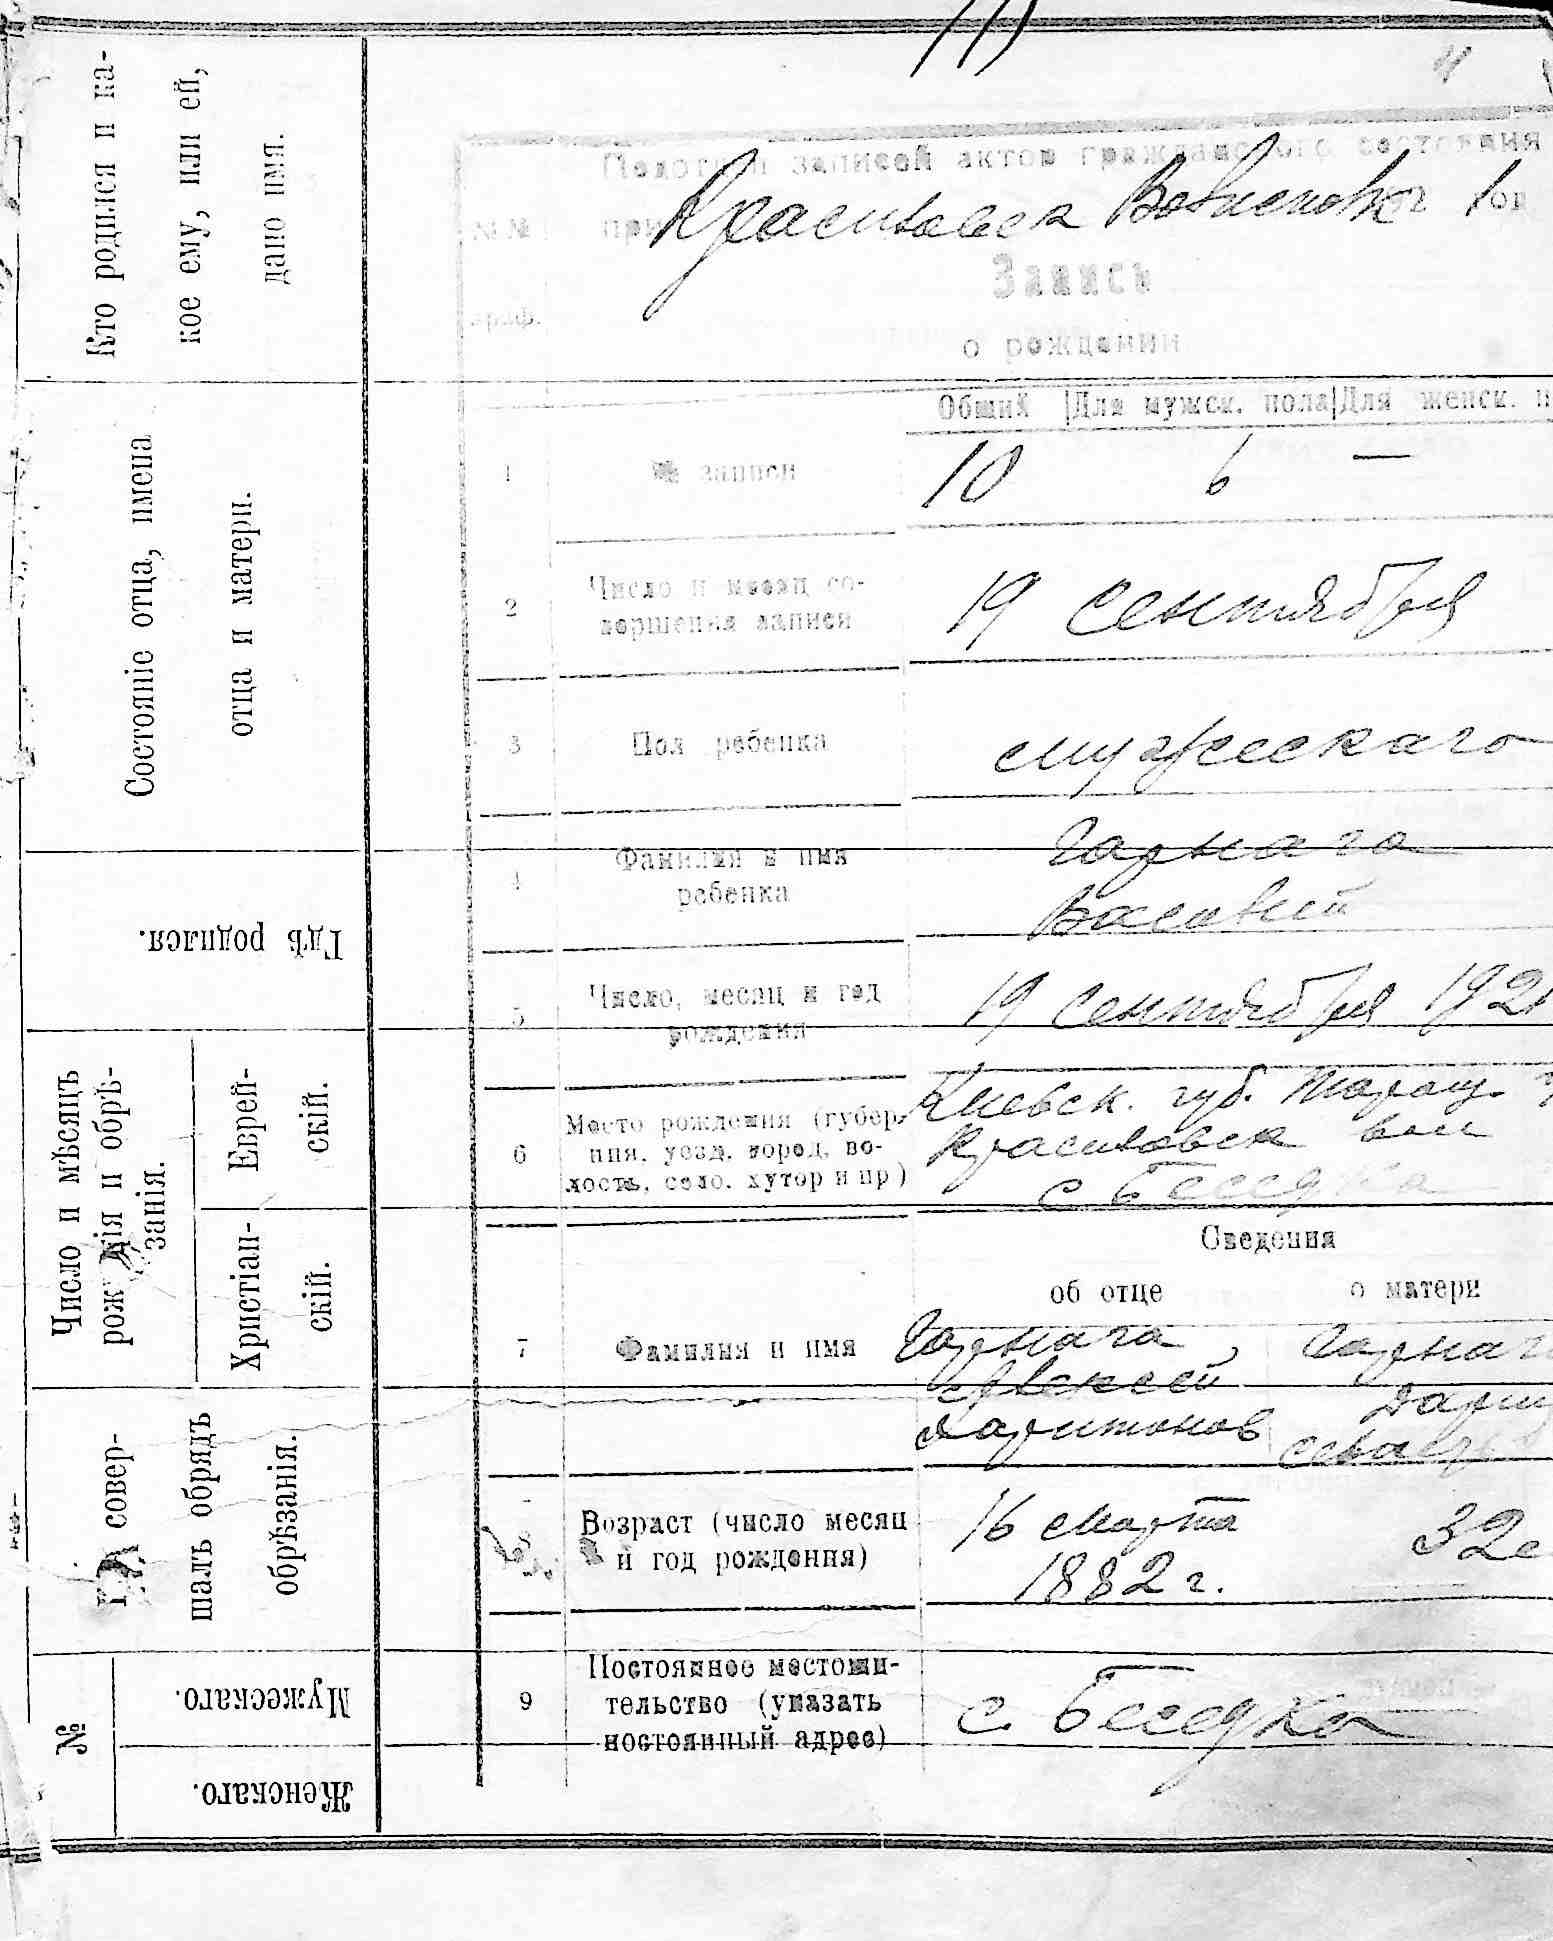 Кто родился и ка-
кое ему, или ей,
дано имя.
Состояніе отца, имена
отца и матери.
Гдѣ родился.
Число и мѣсяцъ
рож нія и обрѣ-
занія.
Еврей-
скій.
Христіан-
скій.
совер-
шалъ обрядъ
обрѣзанія.
№
Мужескаго.
Женскаго.
Подотдел записей актов гражданского состояния
№№ при
граф.
Запись
о рождении
Общий Для мужск. пола Для женск. п
1 № записи 10 6 —
2 Число и месяц со-
вершения записи
19 сентября
3 Пол ребенка мужескаго
4 Фамилия и имя
ребенка
Гарнага
Василий
5 Число, месяц и год
рождения
19 сентября 192
6 Место рождения (губер-
ния, уезд, город, во-
лость, село, хутор и пр)
Киевск. губ. Таращ.
вол
с Беседка
Сведения
об отце о матери
7 Фамилия и имя
Гарнага Гарнаг
Алексей
Харитонов
Дари
Возраст (число месяц
и год рождения)
16 марта
1882 г.
32
9 Постоянное местожи-
тельство (указать
постоянный адрес)
с. Беседка